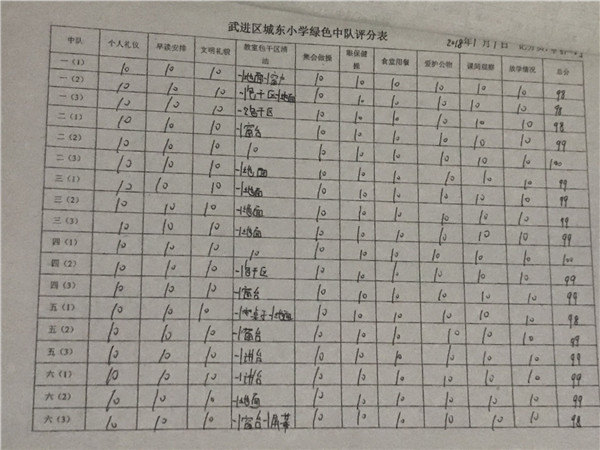 武进区城东小学绿色中队评分表
2018年1月1日
中队 个人礼仪 早读安排 文明礼貌 教室包干区清洁 集会做操 眼保健操 食堂用餐 爱护公物 课间观察 放学情况 总分
一（1） 10 10 10 -1地面-1窗户 10 10 10 10 10 10 98
一（2） 10 10 10 -1包干区-1地面 10 10 10 10 10 10 98
一（3） 10 10 10 -2包干区 10 10 10 10 10 10 98
二（1） 10 10 10 -1窗台 10 10 10 10 10 10 99
二（2） 10 10 10 10 10 10 10 10 10 10 100
二（3） 10 10 10 -1地面 10 10 10 10 10 10 99
三（1） 10 10 10 -1地面 10 10 10 10 10 10 99
三（2） 10 10 10 -1地面 10 10 10 10 10 10 99
三（3） 10 10 10 -1地面 10 10 10 10 10 10 99
四（1） 10 10 10 10 10 10 10 10 10 10 100
四（2） 10 10 10 -1包干区 10 10 10 10 10 10 99
四（3） 10 10 10 -1窗台 10 10 10 10 10 10 99
五（1） 10 10 10 桌子-1地面 10 10 10 10 10 10 98
五（2） 10 10 10 -1窗台 10 10 10 10 10 10 99
五（3） 10 10 10 -1讲台 10 10 10 10 10 10 99
六（1） 10 10 10 -1讲台 10 10 10 10 10 10 99
六（2） 10 10 10 -1地面 10 10 10 10 10 10 99
六（3） 10 10 10 -1窗台-1屏幕 10 10 10 10 10 10 98